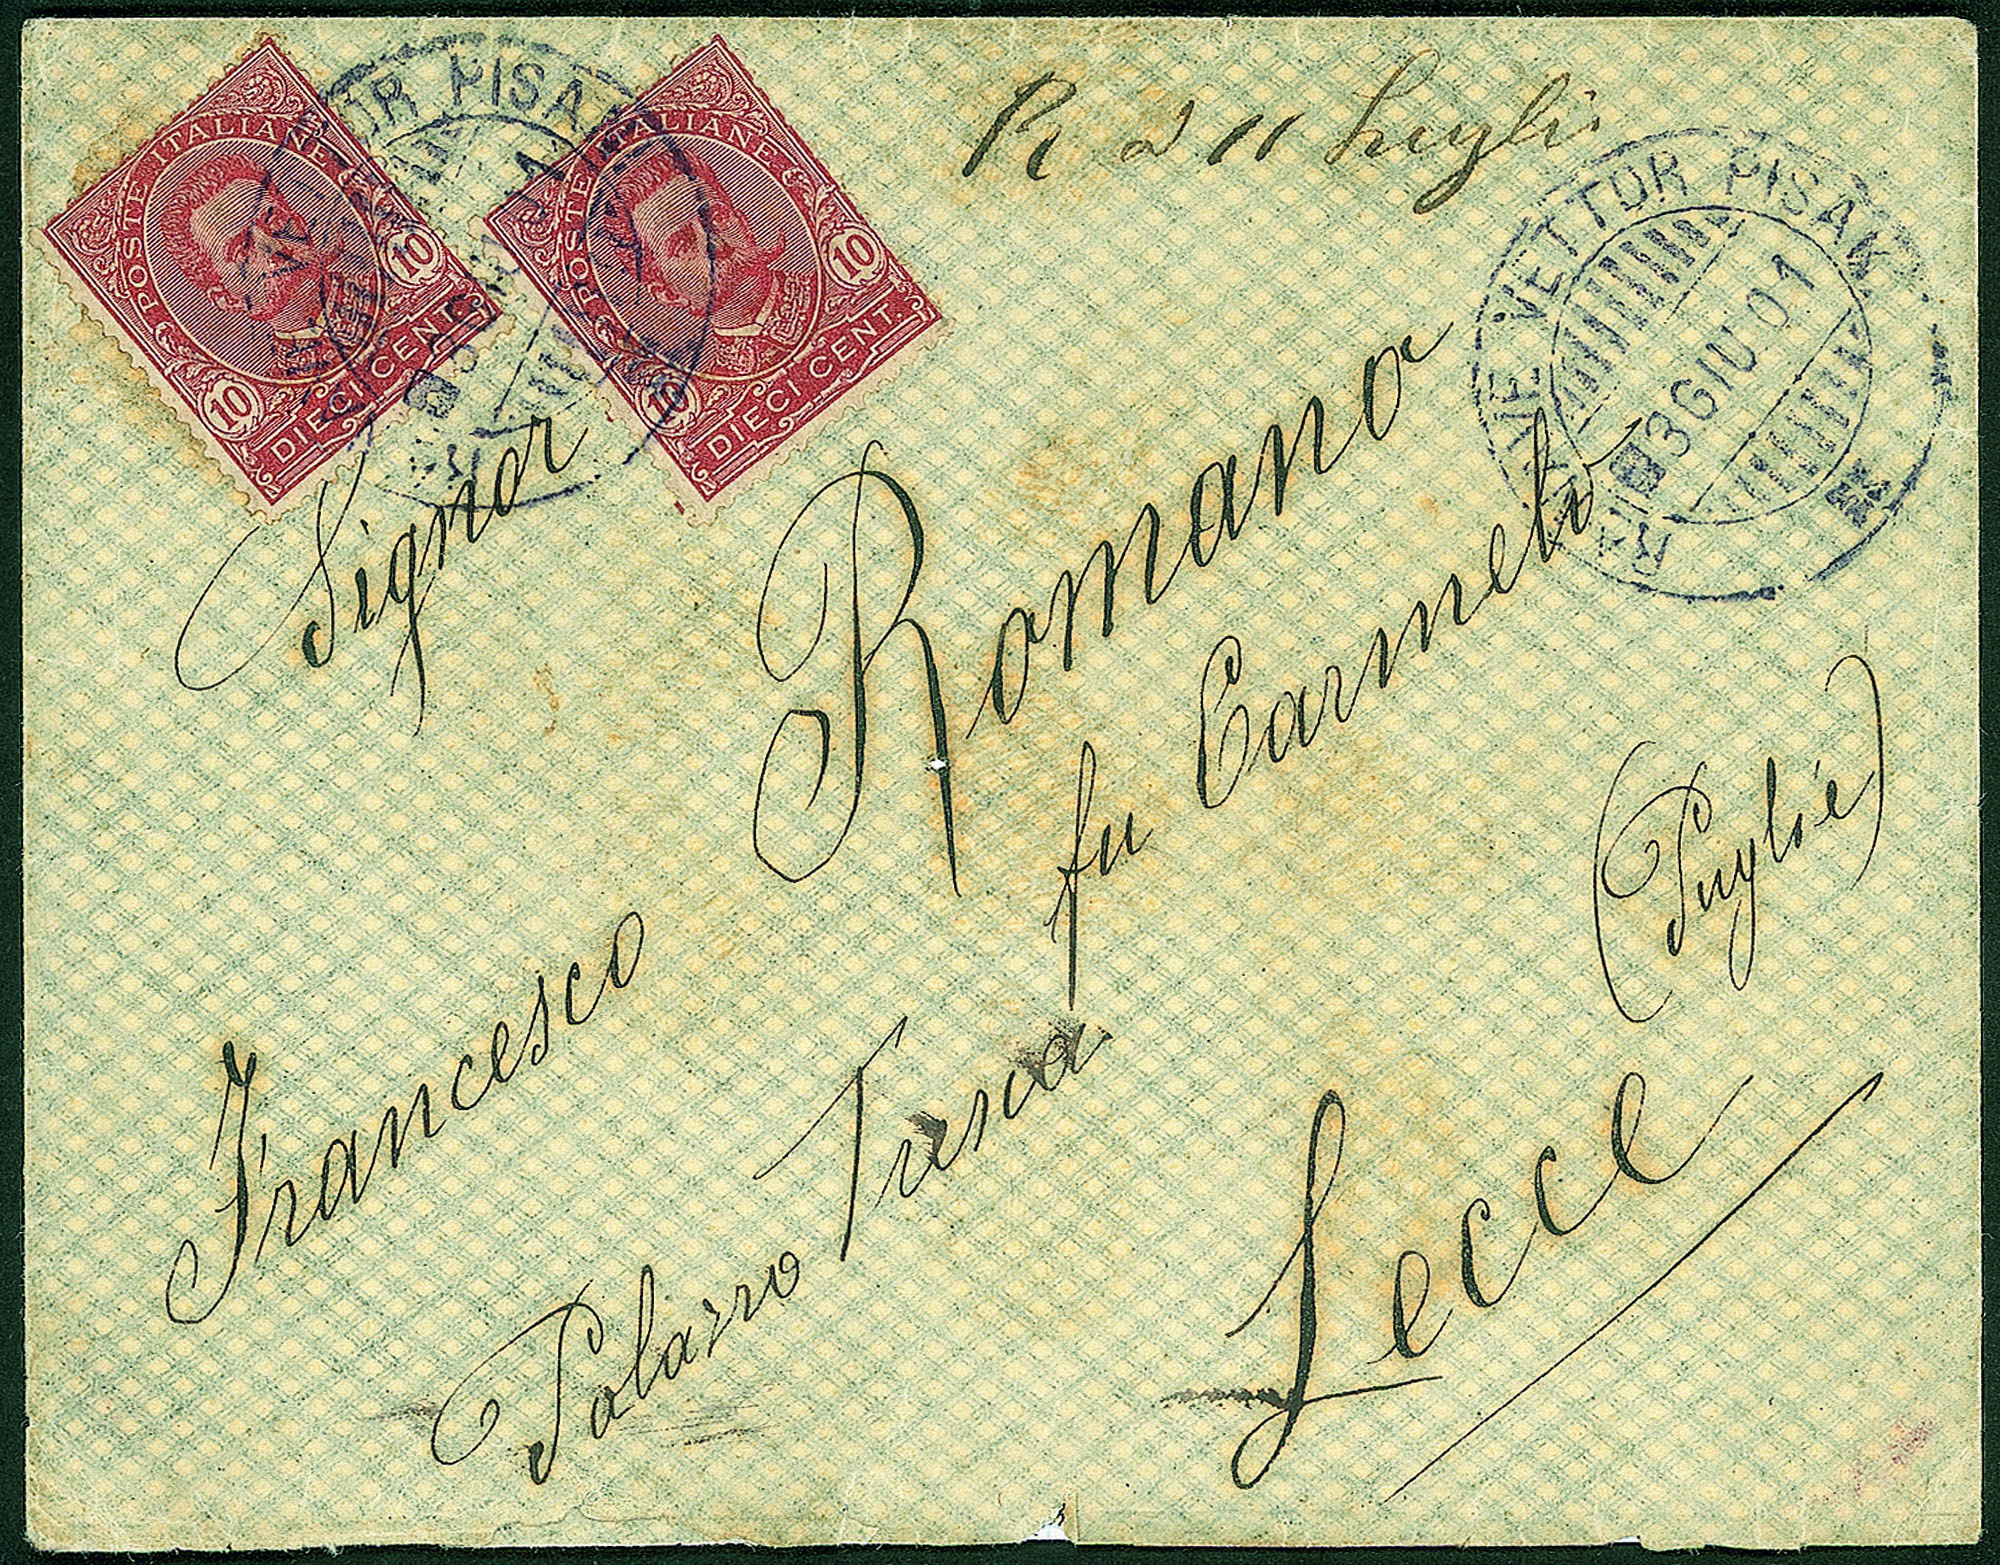 POSTE ITALIANE
10
10
DIECI CENT.
POSTE ITALIANE
10
10
DIECI CENT.
VETTOR PISANI
R a 11 Luglio
NAVE VETTOR PISANI
3 GIU 01
Signor
Romano
Francesco
fu Carmelo
Palazzo Tresca
(Puglie)
Lecce